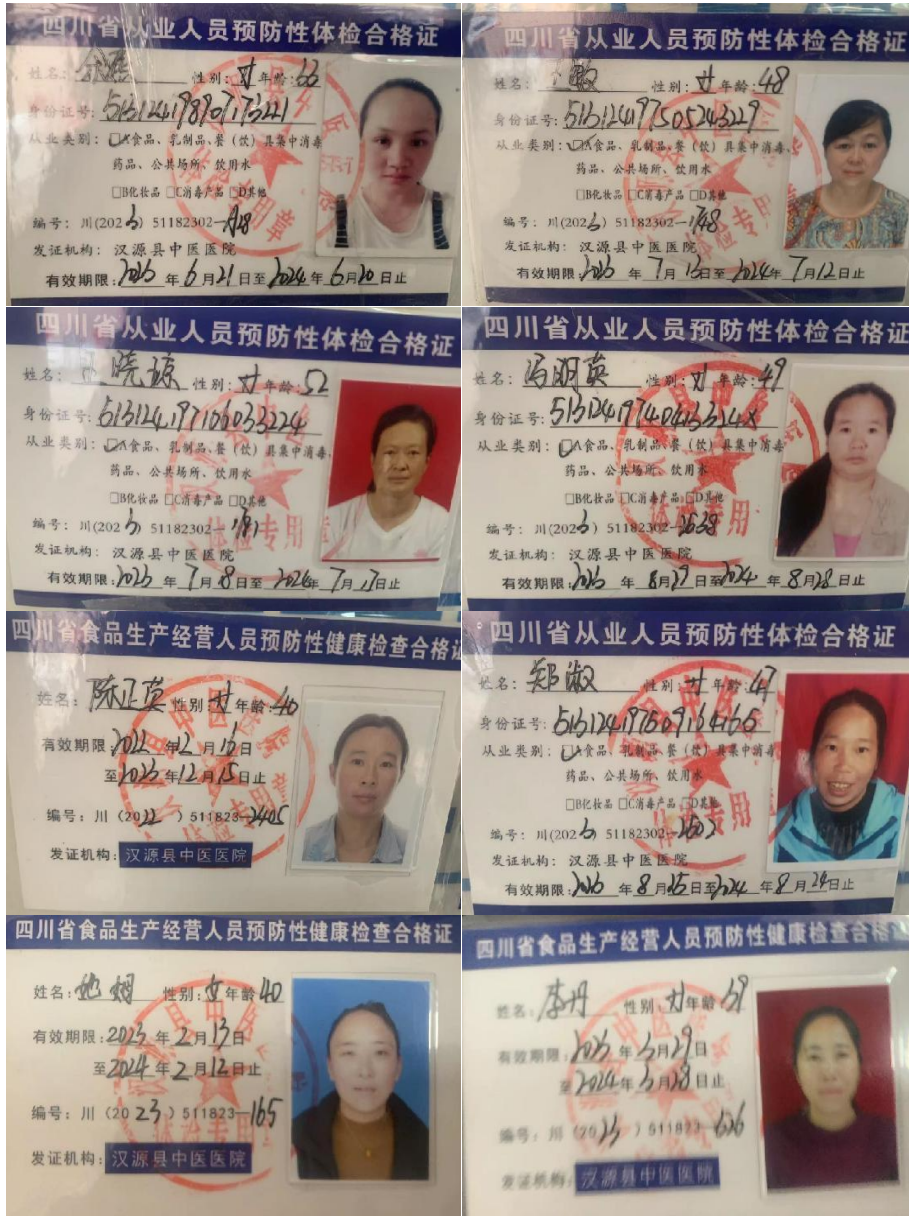 四川省从业人员预防性体检合格证
姓名: 性别:女 年龄:33
身份证号:513124198907173221
从业类别:□A食品、乳制品、餐(饮)具集中消毒、
药品、公共场所、饮用水
□B化妆品 □C消毒产品 □D其他
编号: 川(2023) 51182302—
发证机构: 汉源县中医医院
有效期限:2023 年 6 月 21 日至 2024 年 6 月 20 日止
四川省从业人员预防性体检合格证
姓名: 敏 性别:女 年龄:48
身份证号:513124197505243229
从业类别:□A食品、乳制品、餐(饮)具集中消毒、
药品、公共场所、饮用水
□B化妆品 □C消毒产品 □D其他
编号: 川(2023) 51182302—1748
发证机构: 汉源县中医医院
有效期限:2023 年 7 月 13 日至 2024 年 7 月 12 日止
四川省从业人员预防性体检合格证
姓名: 晓琼 性别:女 年龄:52
身份证号:513124197106033224
从业类别:□A食品、乳制品、餐(饮)具集中消毒、
药品、公共场所、饮用水
□B化妆品 □C消毒产品 □D其他
编号: 川(2023) 51182302—
发证机构: 汉源县中医医院
有效期限:2023 年 7 月 18 日至 2024 年 7 月 17 日止
四川省从业人员预防性体检合格证
姓名: 冯明英 性别:女 年龄:49
身份证号:51312419740413324X
从业类别:□A食品、乳制品、餐(饮)具集中消毒
药品、公共场所、饮用水
□B化妆品 □C消毒产品 □D其他
编号: 川(2023) 51182302—2638
发证机构: 汉源县中医医院
有效期限:2023 年 8 月 29 日至 2024 年 8 月 28 日止
四川省食品生产经营人员预防性健康检查合格证
姓名:陈正英 性别:女 年龄:40
有效期限:2022 年 12 月 16 日
至 2023 年 12 月 15 日止
编号: 川(2022) 511823—2405
发证机构:汉源县中医医院
四川省从业人员预防性体检合格证
姓名: 郑淑 性别:女 年龄:47
身份证号:513124197509164165
从业类别:□A食品、乳制品、餐(饮)具集中消毒
药品、公共场所、饮用水
□B化妆品 □C消毒产品 □D其他
编号: 川(2023) 51182302—
发证机构: 汉源县中医医院
有效期限:2023 年 8 月 25 日至 2024 年 8 月 24 日止
四川省食品生产经营人员预防性健康检查合格证
姓名: 性别:女 年龄:40
有效期限:2023 年 2 月 13 日
至 2024 年 2 月 12 日止
编号: 川(2023) 511823—165
发证机构:汉源县中医医院
四川省食品生产经营人员预防性健康检查合格
姓名: 李丹 性别:女 年龄:39
有效期限:2023 年 3 月 29 日
至 2024 年 3 月 28 日止
编号: 川(2023) 511823—626
发证机构:汉源县中医医院